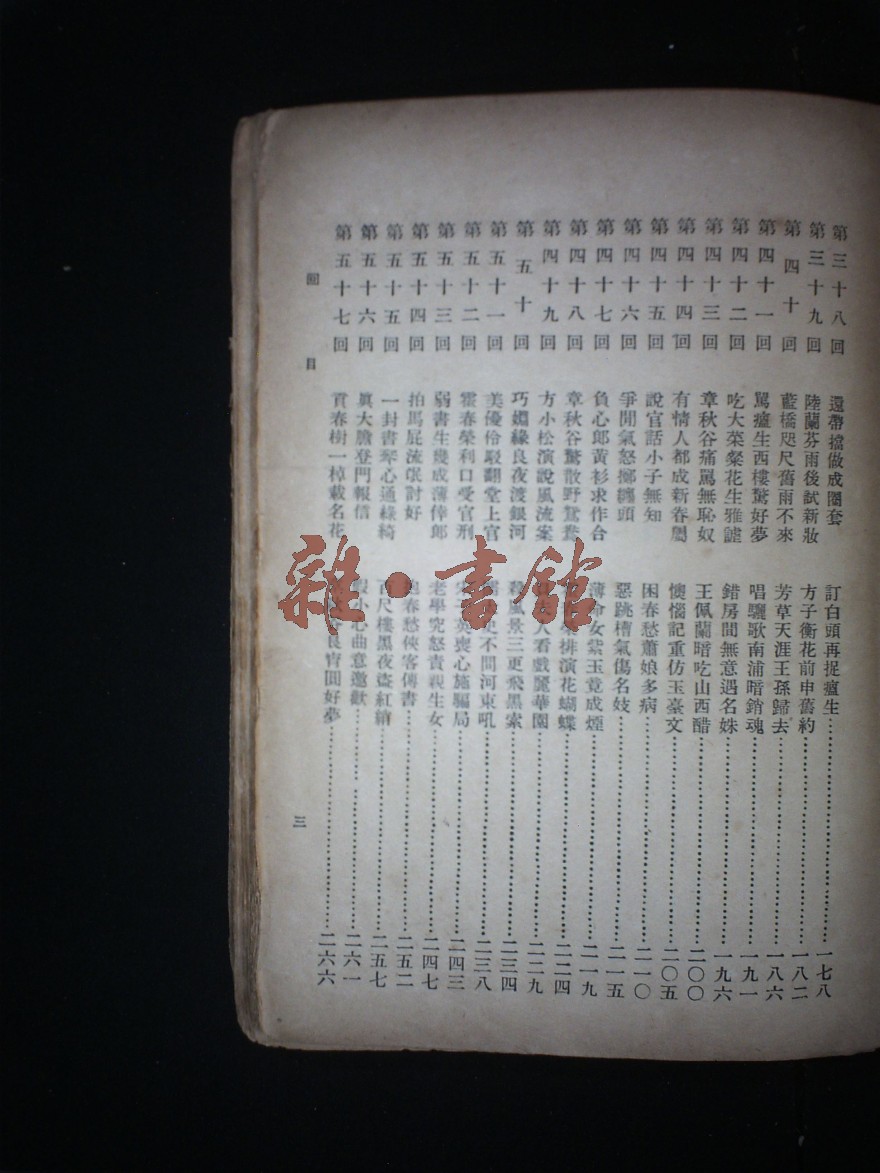 第三十八回 還帶擋做成圈套 訂白頭再捉瘟生 一七八
第三十九回 陸蘭芬雨後試新妝 方子衡花前申舊約 一八二
第四十回 藍橋咫尺舊雨不來 芳草天涯王孫歸去 一八六
第四十一回 罵瘟生西樓驚好夢 唱驪歌南浦暗銷魂 一九一
第四十二回 吃大菜粲花生雅謔 錯房間無意遇名姝 一九六
第四十三回 章秋谷痛罵無恥奴 王佩蘭暗吃山西醋 二〇〇
第四十四回 有情人都成新眷屬 懊惱記重仿玉臺文 二〇五
第四十五回 說官話小子無知 困春愁蕭娘多病 二一〇
第四十六回 爭閒氣怒擲纏頭 惡跳槽氣傷名妓 二一五
第四十七回 負心郎黃衫求作合 薄命女紫玉竟成煙 二一九
第四十八回 章秋谷驚散野鴛鴦 排演花蝴蝶 二二四
第四十九回 方小松演說風流案 人看戲麗華園 二二九
第五十回 巧姻緣良夜渡銀河 風景三更飛黑索 二三四
第五十一回 美優伶駁翻堂上官 史不聞河東吼 二三八
第五十二回 霍春榮利口受官刑 英喪心施騙局 二四三
第五十三回 弱書生幾成薄倖郎 老學究怒責親生女 二四七
第五十四回 拍馬屁流氓討好 春愁俠客傳書 二五二
第五十五回 一封書琴心通綠綺 百尺樓黑夜盜紅綃 二五七
第五十六回 真大膽登門報信 假小心曲意邀歡 二六一
第五十七回 貢春樹一棹載名花 良宵圓好夢 二六六
回目
三
雜·書館